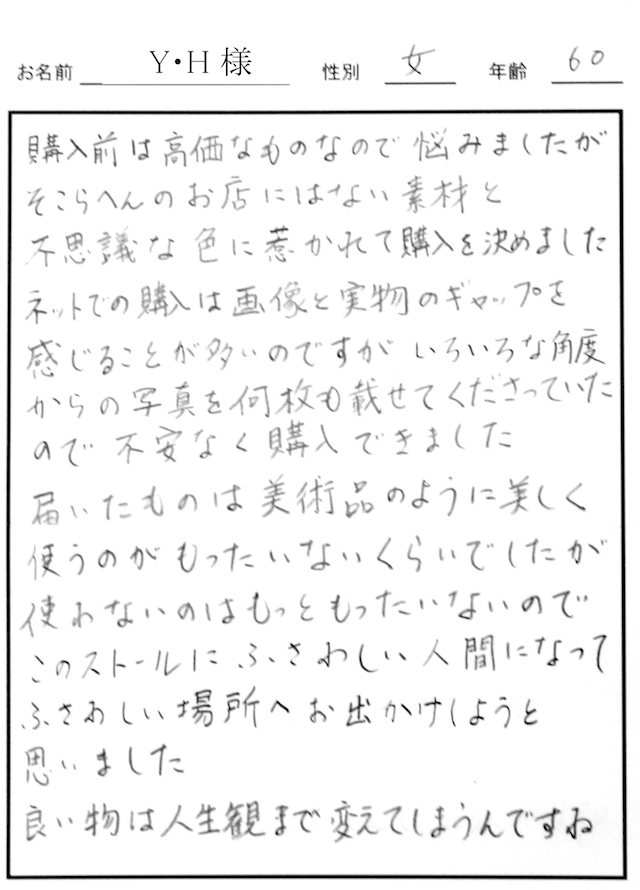 お名前 Y・H 様 性別 女 年齢 60
購入前は高価なものなので悩みましたが
そこらへんのお店にはない素材と
不思議な色に惹かれて購入を決めました
ネットでの購入は画像と実物のギャップを
感じることが多いのですがいろいろな角度
からの写真を何枚も載せてくださっていた
ので不安なく購入できました
届いたものは美術品のように美しく
使うのがもったいないくらいでしたが
使わないのはもっともったいないので
このストールにふさわしい人間になって
ふさわしい場所へお出かけしようと
思いました
良い物は人生観まで変えてしまうんですね